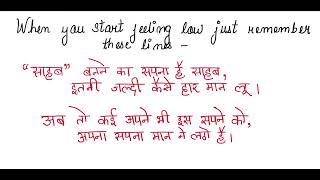 When you start feeling low just remember
these lines –
"साहब" बनने का सपना है, साहब,
इतनी जल्दी कैसे हार मान लू।
अब तो कई अपने भी इस सपने को,
अपना सपना मान ने लगे हैं।